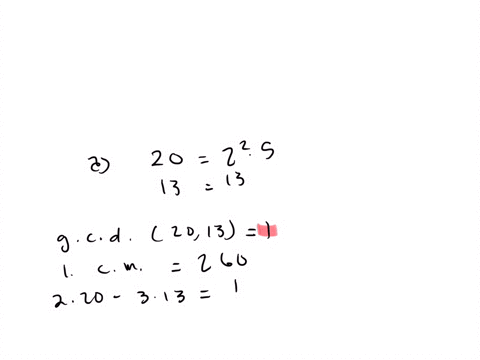 a) 20 = 2². 5
13 = 13
g.c.d. (20,13) = 1
l. c.m. = 260
2.20 - 3.13 = 1